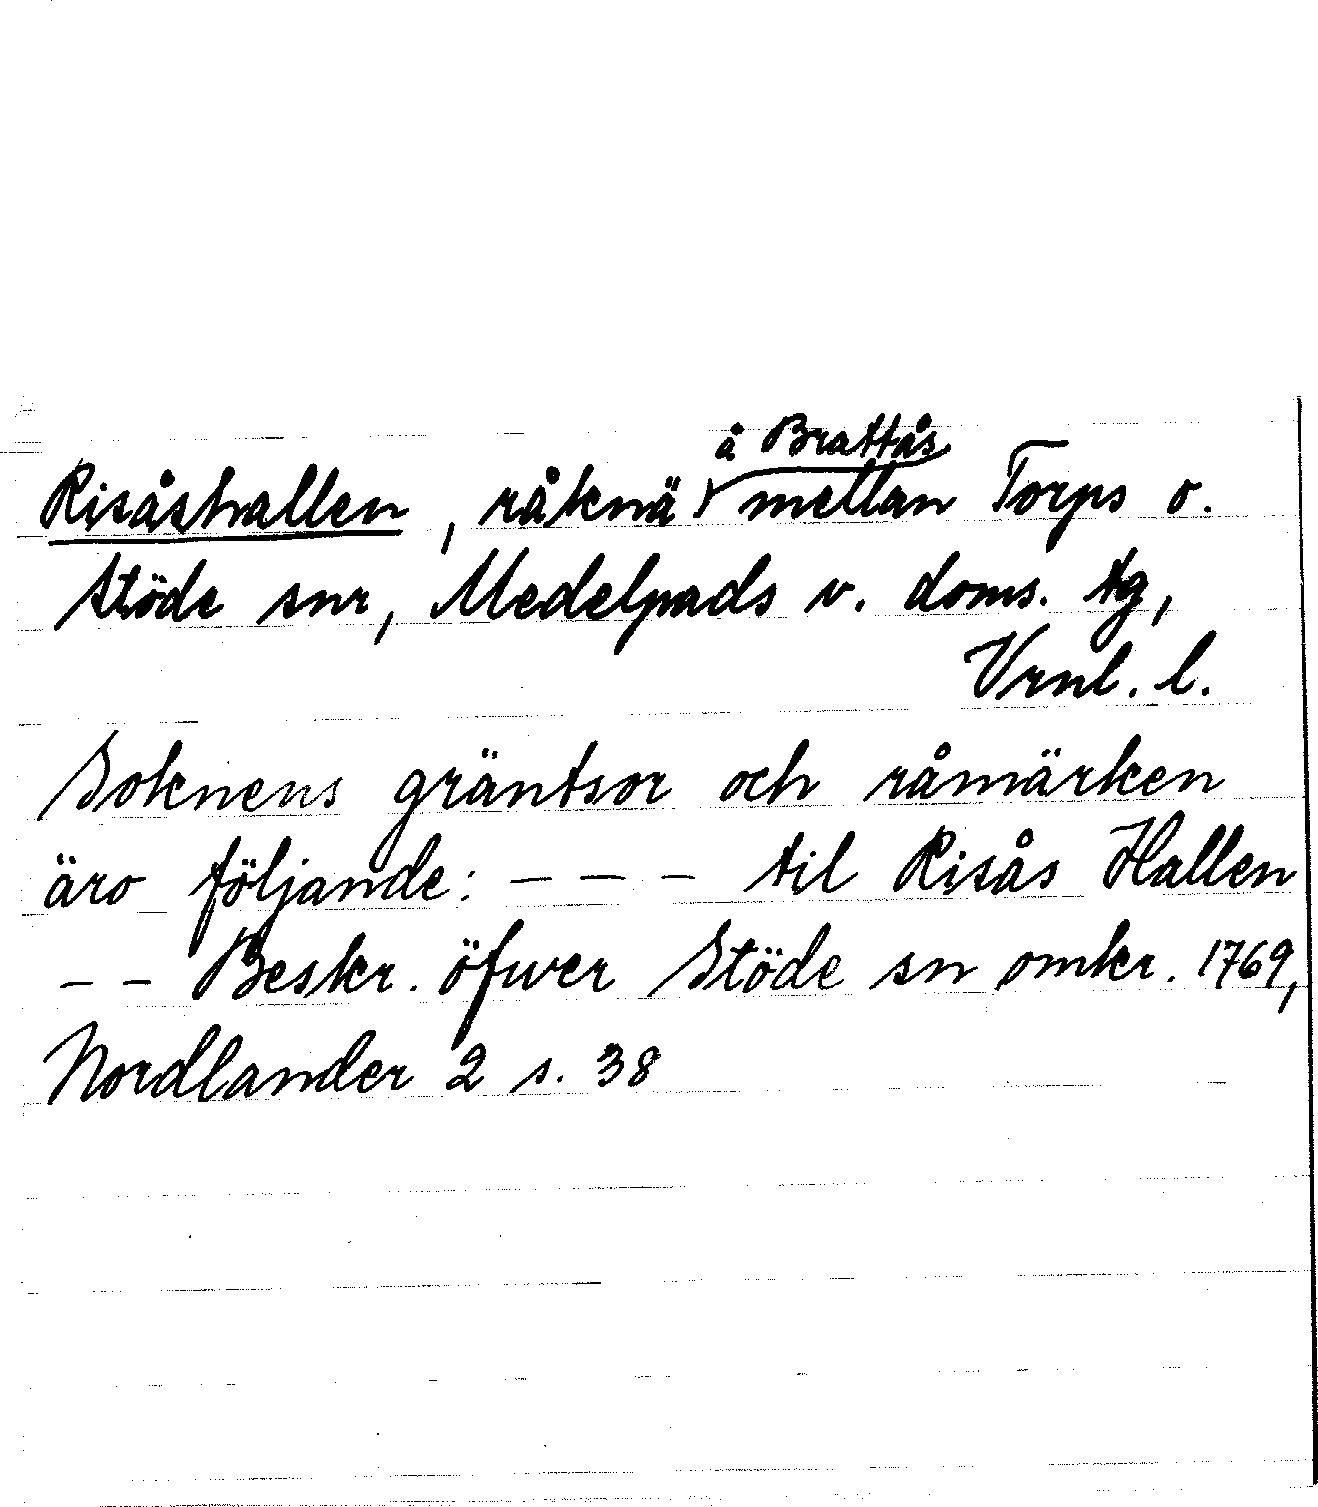 Risåshallen, råknä å Brattås mellan Torps o.
Stöde snr, Medelpads v. doms. tg,
Vrnl. l.
Soknens gräntsor och råmärken
äro följande: – – – til Risås Hallen
– – Beskr. öfwer Stöde sn omkr. 1769,
Nordlander 2 s. 38